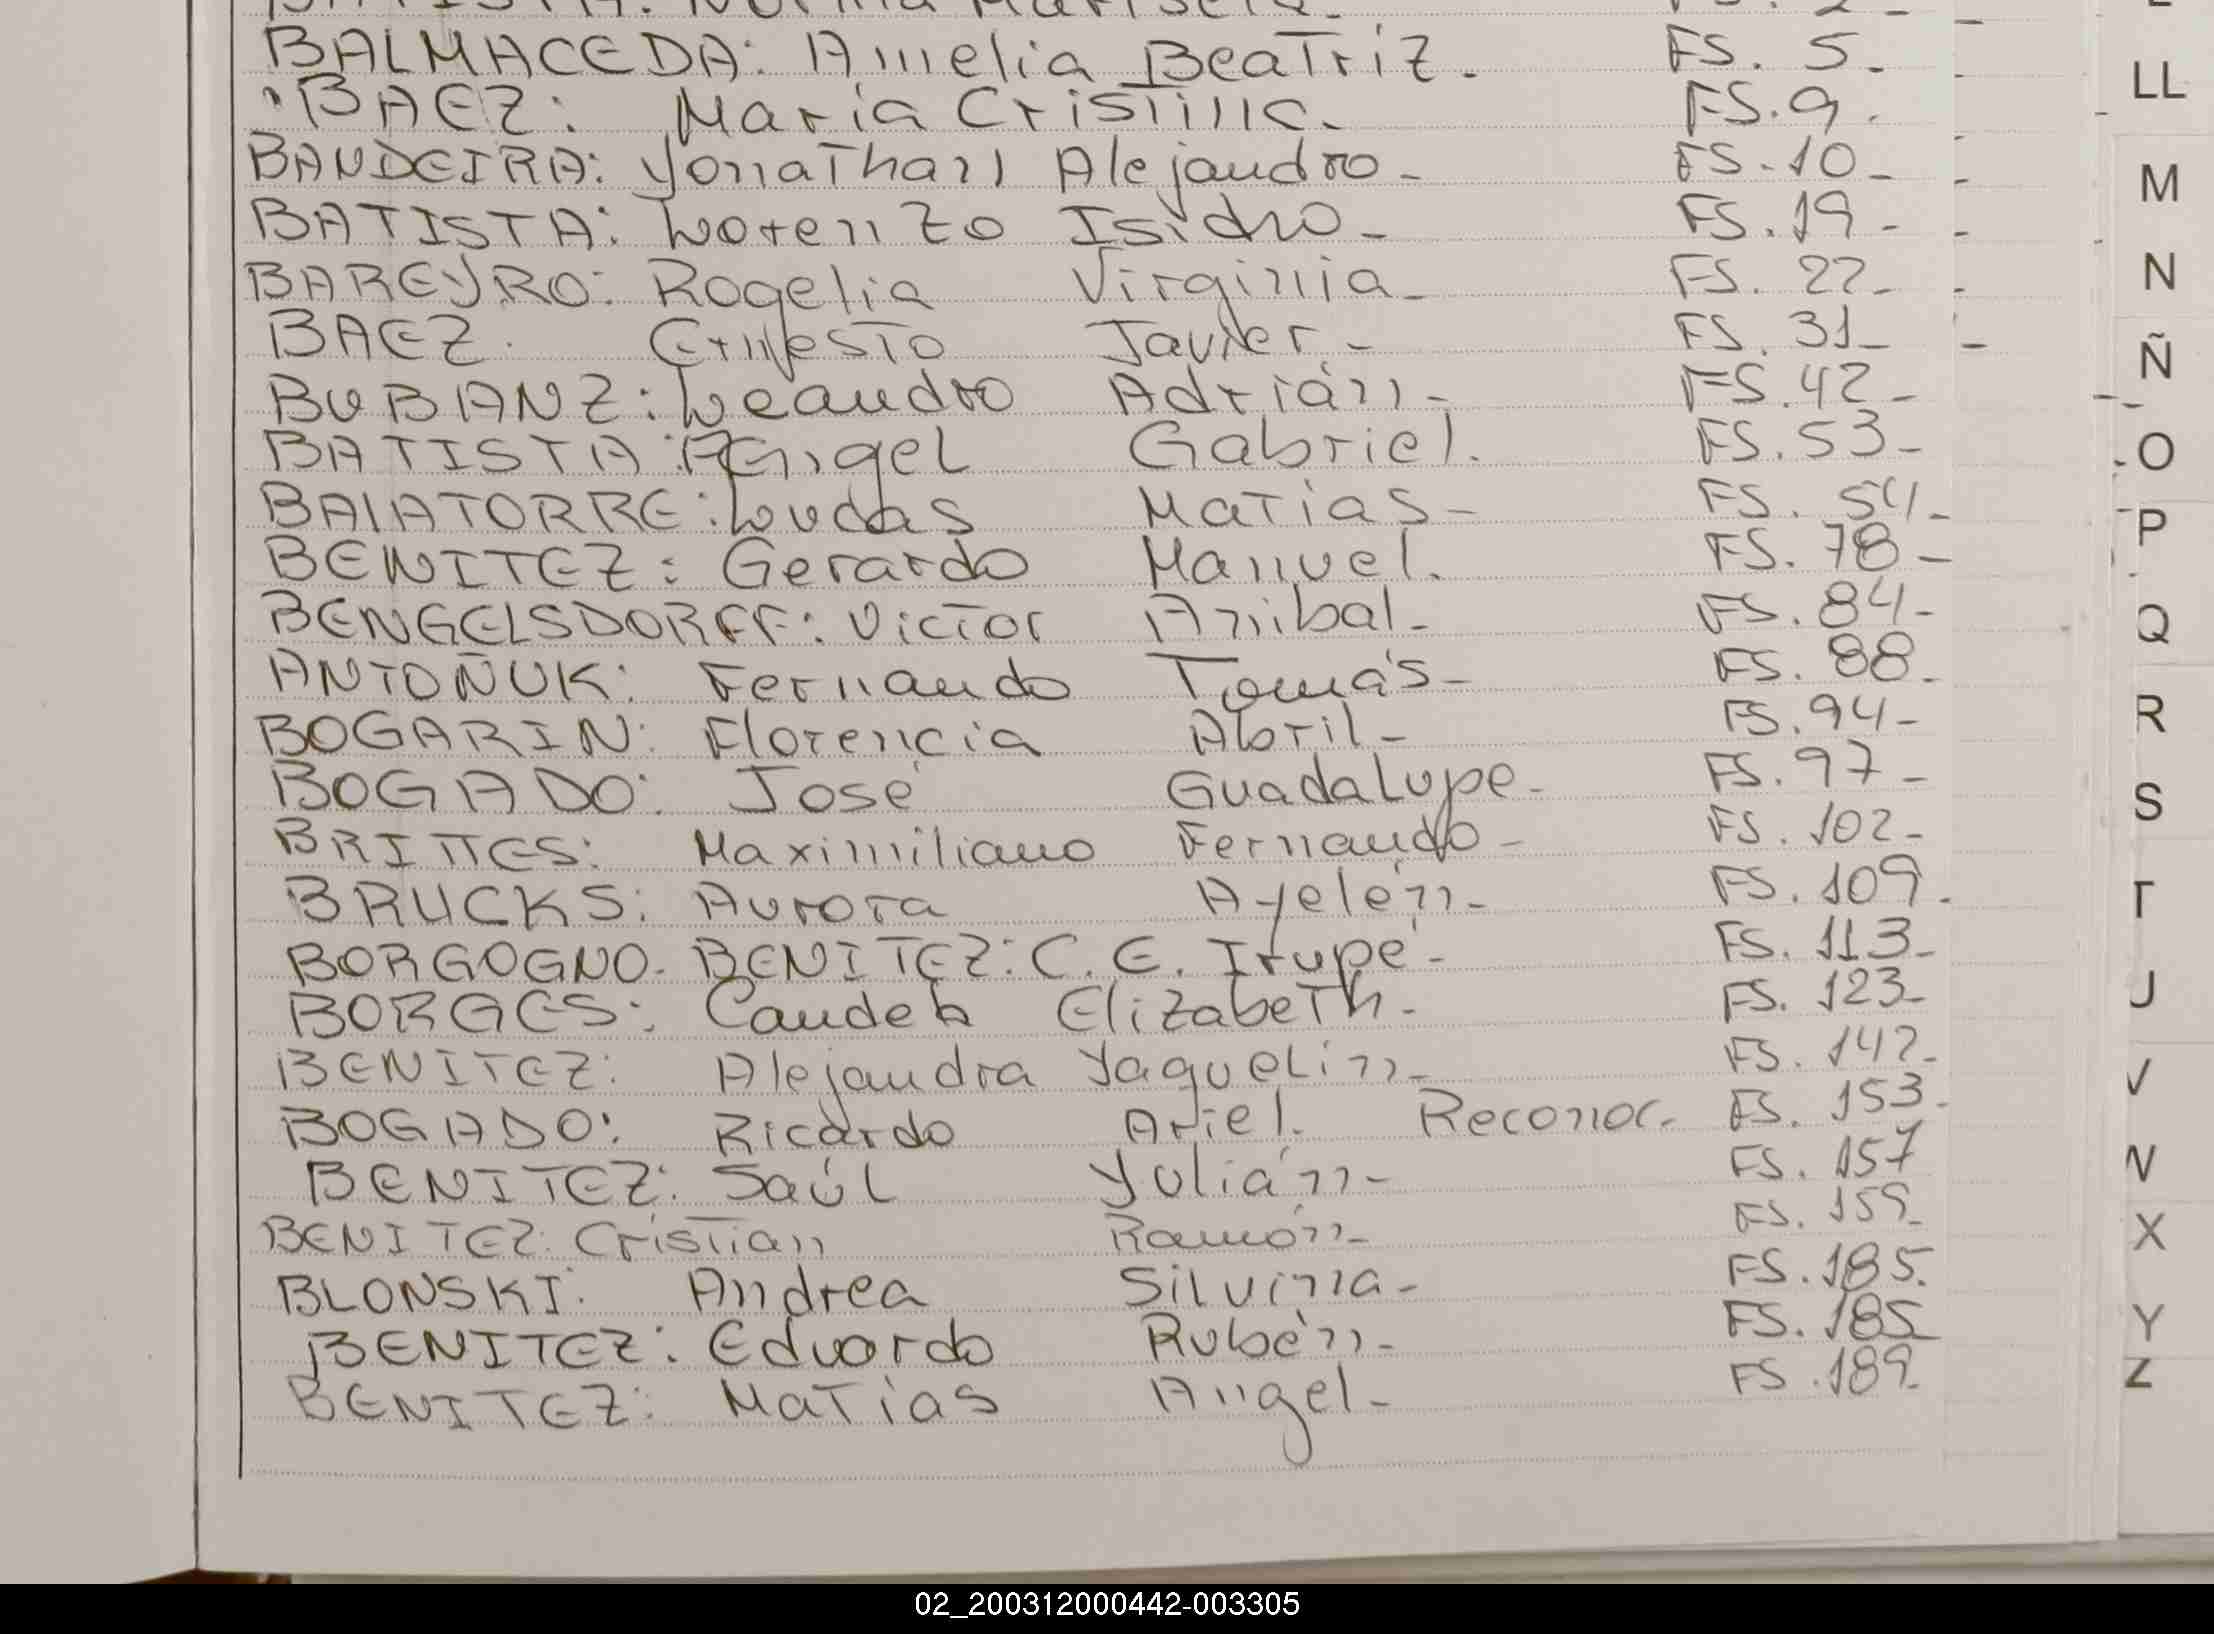 BATISTA: Norma Marisela. FS. 2-
BALMACEDA: Amelia Beatriz. FS. 5.
BAEZ: María Cristina. FS. 9.
BANDEIRA: Yonathan Alejandro- FS. 10-
BATISTA: Lorenzo Isidro- FS. 19-
BAREYRO: Rogelia Virginia- FS. 22-
BAEZ. Ernesto Javier.- FS. 31-
BUBANZ: Leandro Adrián- FS. 42-
BATISTA: Angel Gabriel. FS. 53-
BALATORRE: Lucas Matías- FS. 54-
BENITEZ: Gerardo Manuel. FS. 78-
BENGELSDORFF: Victor Anibal- FS. 84-
ANTOÑUK: Fernando Tomás- FS. 88.
BOGARIN: Florencia Abril- FS. 94-
BOGADO: José Guadalupe- FS. 97-
BRITTES: Maximiliano Fernando- FS. 102-
BRUCKS: Aurora Ayelén- FS. 109.
BORGOGNO- BENITEZ: C. E. Irupé- FS. 113-
BORGES: Candela Elizabeth- FS. 123-
BENITEZ: Alejandra Yaquelin- FS. 142-
BOGADO: Ricardo Ariel. Reconoc. FS. 153-
BENITEZ: Saúl Yulián- FS. 157
BENITEZ: Cristian Ramón- FS. 159-
BLONSKI: Andrea Silvina- FS. 185.
BENITEZ: Eduardo Rubén- FS. 185-
BENITEZ: Matías Angel- FS. 189-
LL
M
N
Ñ
O
P
Q
R
S
T
X
Y
Z
02_200312000442-003305